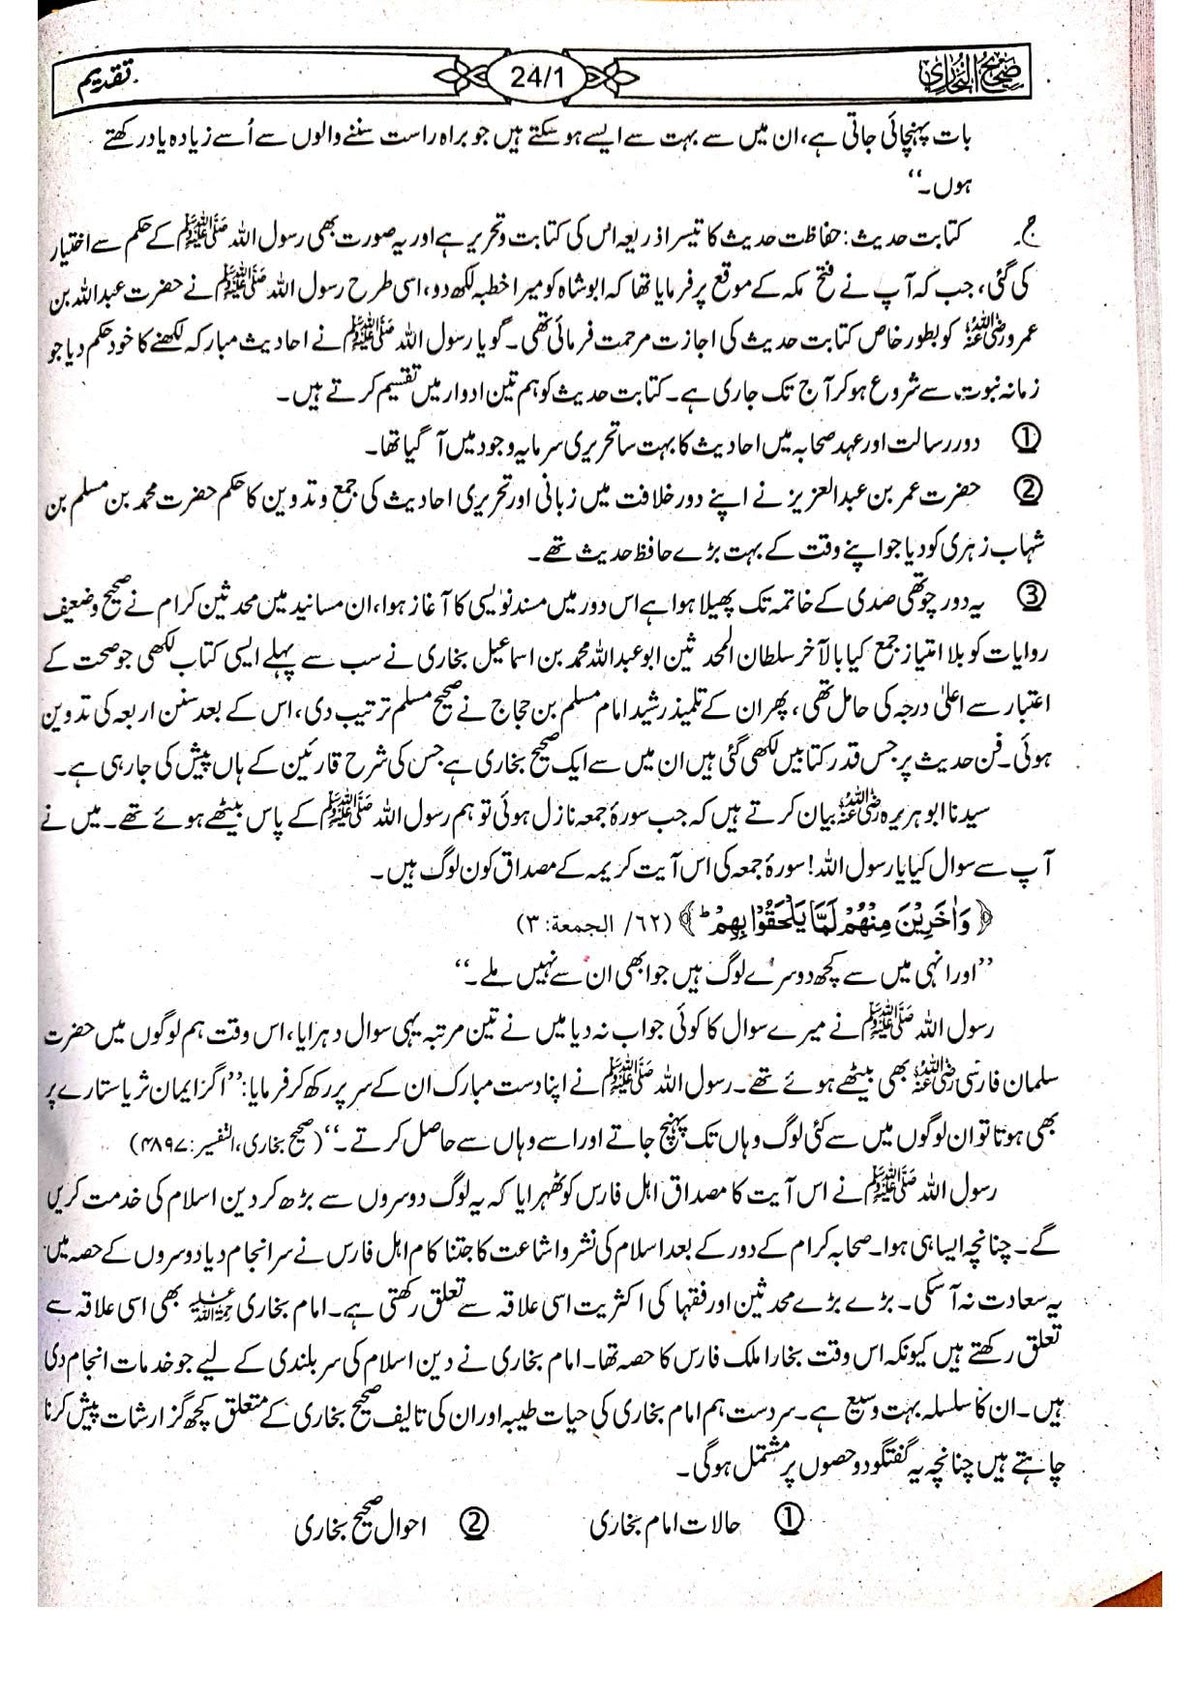 صحیح البخاری 24/1 تقدیم
بات پہنچائی جاتی ہے، ان میں سے بہت سے ایسے ہو سکتے ہیں جو براہ راست سننے والوں سے اُسے زیادہ یاد رکھتے
ہوں۔“
ج۔ کتابت حدیث: حفاظت حدیث کا تیسرا ذریعہ اس کی کتابت و تحریر ہے اور یہ صورت بھی رسول اللہ ﷺ کے حکم سے اختیار
کی گئی، جب کہ آپ نے فتح مکہ کے موقع پر فرمایا تھا کہ ابوشاہ کو میرا خطبہ لکھ دو، اسی طرح رسول اللہ ﷺ نے حضرت عبداللہ بن
عمرو رضی اللہ عنہ کو بطور خاص کتابت حدیث کی اجازت مرحمت فرمائی تھی۔ گویا رسول اللہ ﷺ نے احادیث مبارکہ لکھنے کا خود حکم دیا جو
زمانہ نبوت سے شروع ہو کر آج تک جاری ہے۔ کتابت حدیث کو ہم تین ادوار میں تقسیم کرتے ہیں۔
① دور رسالت اور عہد صحابہ میں احادیث کا بہت سا تحریری سرمایہ وجود میں آ گیا تھا۔
② حضرت عمر بن عبدالعزیز نے اپنے دور خلافت میں زبانی اور تحریری احادیث کی جمع و تدوین کا حکم حضرت محمد بن مسلم بن
شہاب زہری کو دیا جو اپنے وقت کے بہت بڑے حافظ حدیث تھے۔
③ یہ دور چوتھی صدی کے خاتمہ تک پھیلا ہوا ہے اس دور میں مسند نویسی کا آغاز ہوا، ان مسانید میں محدثین کرام نے صحیح و ضعیف
روایات کو بلا امتیاز جمع کیا بالآخر سلطان المحدثین ابوعبداللہ محمد بن اسماعیل بخاری نے سب سے پہلے ایسی کتاب لکھی جو صحت کے
اعتبار سے اعلیٰ درجہ کی حامل تھی، پھر ان کے تلمیذ رشید امام مسلم بن حجاج نے صحیح مسلم ترتیب دی، اس کے بعد سنن اربعہ کی تدوین
ہوئی۔ فن حدیث پر جس قدر کتابیں لکھی گئی ہیں ان میں سے ایک صحیح بخاری ہے جس کی شرح قارئین کے ہاں پیش کی جارہی ہے۔
سیدنا ابو ہریرہ رضی اللہ عنہ بیان کرتے ہیں کہ جب سورۂ جمعہ نازل ہوئی تو ہم رسول اللہ ﷺ کے پاس بیٹھے ہوئے تھے۔ میں نے
آپ سے سوال کیا یا رسول اللہ! سورۂ جمعہ کی اس آیت کریمہ کے مصداق کون لوگ ہیں۔
﴿وَاٰخَرِیْنَ مِنْهُمْ لَمَّا یَلْحَقُوْا بِهِمْ ؕ﴾ (٦٢/ الجمعة: ٣)
”اور انہی میں سے کچھ دوسرے لوگ ہیں جو ابھی ان سے نہیں ملے۔“
رسول اللہ ﷺ نے میرے سوال کا کوئی جواب نہ دیا میں نے تین مرتبہ یہی سوال دہرایا، اس وقت ہم لوگوں میں حضرت
سلمان فارسی رضی اللہ عنہ بھی بیٹھے ہوئے تھے۔ رسول اللہ ﷺ نے اپنا دست مبارک ان کے سر پر رکھ کر فرمایا: ”اگر ایمان ثریا ستارے پر
بھی ہوتا تو ان لوگوں میں سے کئی لوگ وہاں تک پہنچ جاتے اور اسے وہاں سے حاصل کرتے۔“ (صحیح بخاری، التفسیر: ۴۸۹۷)
رسول اللہ ﷺ نے اس آیت کا مصداق اہل فارس کو ٹھہرایا کہ یہ لوگ دوسروں سے بڑھ کر دین اسلام کی خدمت کریں
گے۔ چنانچہ ایسا ہی ہوا۔ صحابہ کرام کے دور کے بعد اسلام کی نشر و اشاعت کا جتنا کام اہل فارس نے سرانجام دیا دوسروں کے حصہ میں
یہ سعادت نہ آسکی۔ بڑے بڑے محدثین اور فقہا کی اکثریت اسی علاقہ سے تعلق رکھتی ہے۔ امام بخاری رحمۃ اللہ علیہ بھی اسی علاقہ سے
تعلق رکھتے ہیں کیونکہ اس وقت بخارا ملک فارس کا حصہ تھا۔ امام بخاری نے دین اسلام کی سربلندی کے لیے جو خدمات انجام دی
ہیں۔ ان کا سلسلہ بہت وسیع ہے۔ سردست ہم امام بخاری کی حیات طیبہ اور ان کی تالیف صحیح بخاری کے متعلق کچھ گزارشات پیش کرنا
چاہتے ہیں چنانچہ یہ گفتگو دو حصوں پر مشتمل ہوگی۔
① حالات امام بخاری ② احوال صحیح بخاری